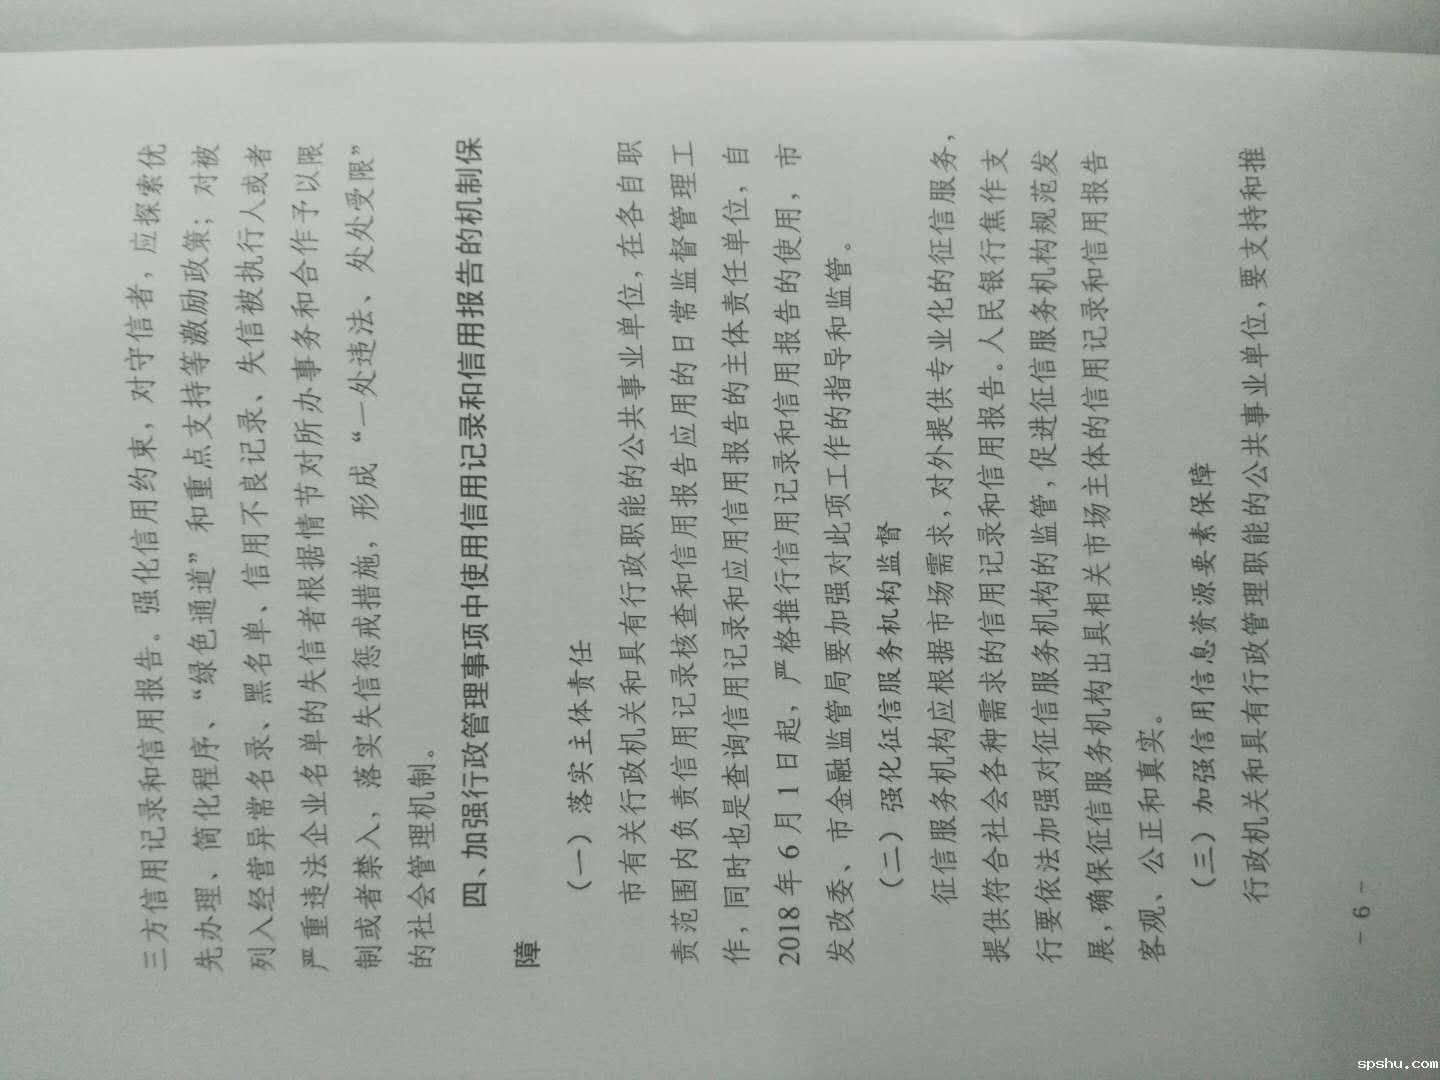 三方信用记录和信用报告。强化信用约束，对守信者，应探索优
先办理、简化程序、“绿色通道”和重点支持等激励政策；对被
列入经营异常名录、黑名单、信用不良记录、失信被执行人或者
严重违法企业名单的失信者根据情节对所办事务和合作予以限
制或者禁入，落实失信惩戒措施，形成“一处违法、处处受限”
的社会管理机制。
四、加强行政管理事项中使用信用记录和信用报告的机制保
障
（一）落实主体责任
市有关行政机关和具有行政职能的公共事业单位，在各自职
责范围内负责信用记录核查和信用报告应用的日常监督管理工
作，同时也是查询信用记录和应用信用报告的主体责任单位，自
2018年6月1日起，严格推行信用记录和信用报告的使用，市
发改委、市金融监管局要加强对此项工作的指导和监管。
（二）强化征信服务机构监督
征信服务机构应根据市场需求，对外提供专业化的征信服务，
提供符合社会各种需求的信用记录和信用报告。人民银行焦作支
行要依法加强对征信服务机构的监管，促进征信服务机构规范发
展，确保征信服务机构出具相关市场主体的信用记录和信用报告
客观、公正和真实。
（三）加强信用信息资源要素保障
行政机关和具有行政管理职能的公共事业单位，要支持和推
- 6 -
spshu.com